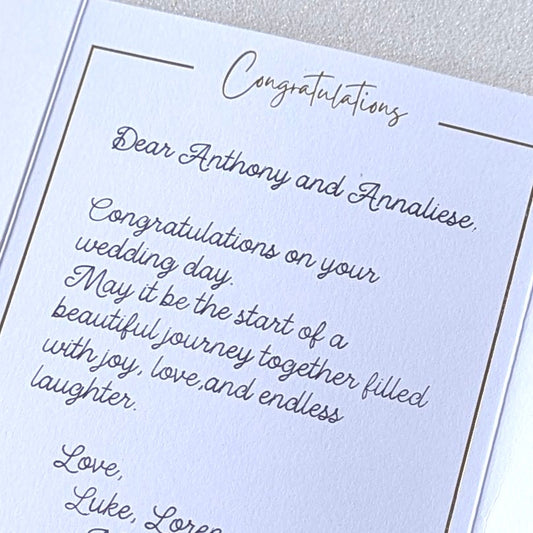 Congratulations
Dear Anthony and Annaliese,
Congratulations on your
wedding day.
May it be the start of a
beautiful journey together filled
with joy, love,and endless
laughter.
Love,
Luke,